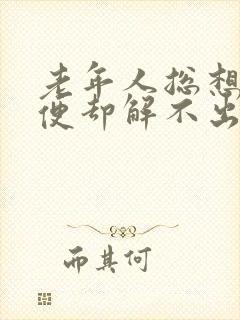 老年人总想
便却解不出
而其何